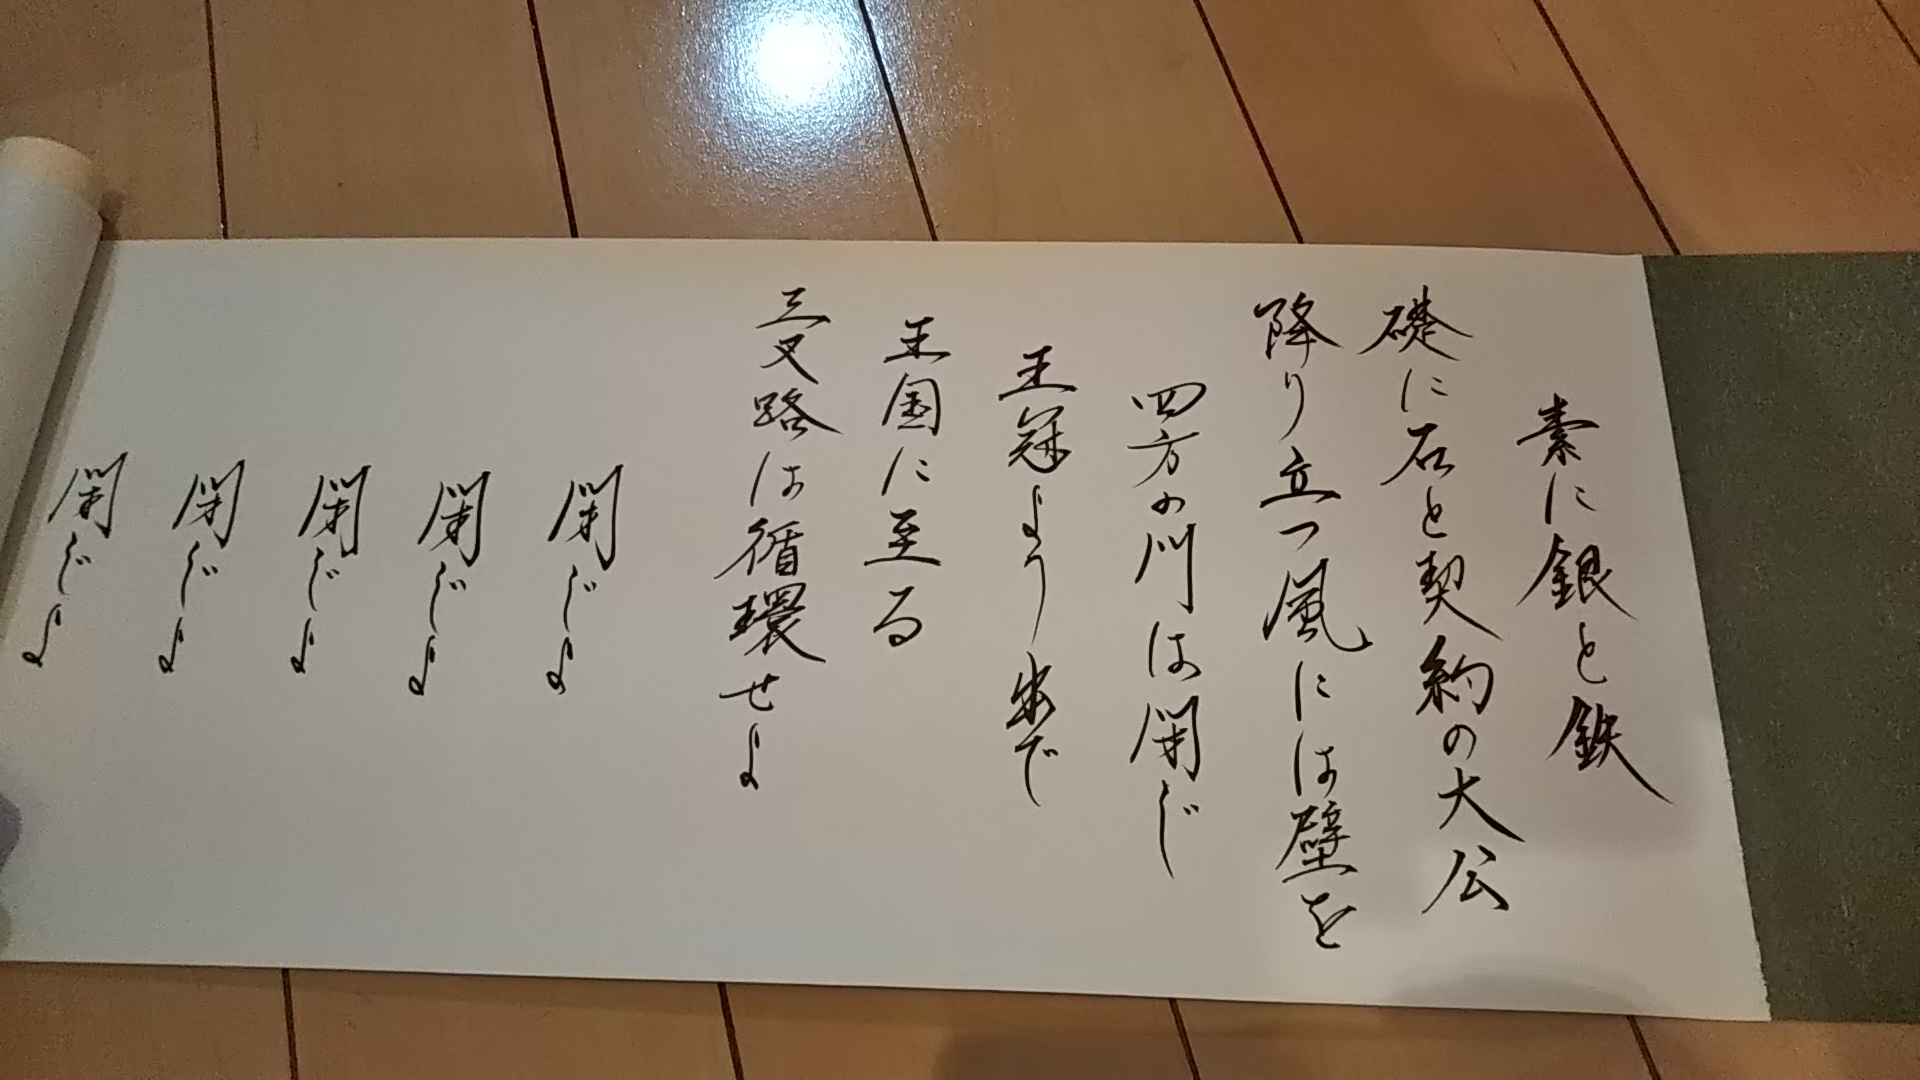 素に銀と鉄
礎に石と契約の大公
降り立つ風には壁を
四方の川は閉じ
王冠より出で
王国に至る
三叉路は循環せよ
閉じよ
閉じよ
閉じよ
閉じよ
閉じよ